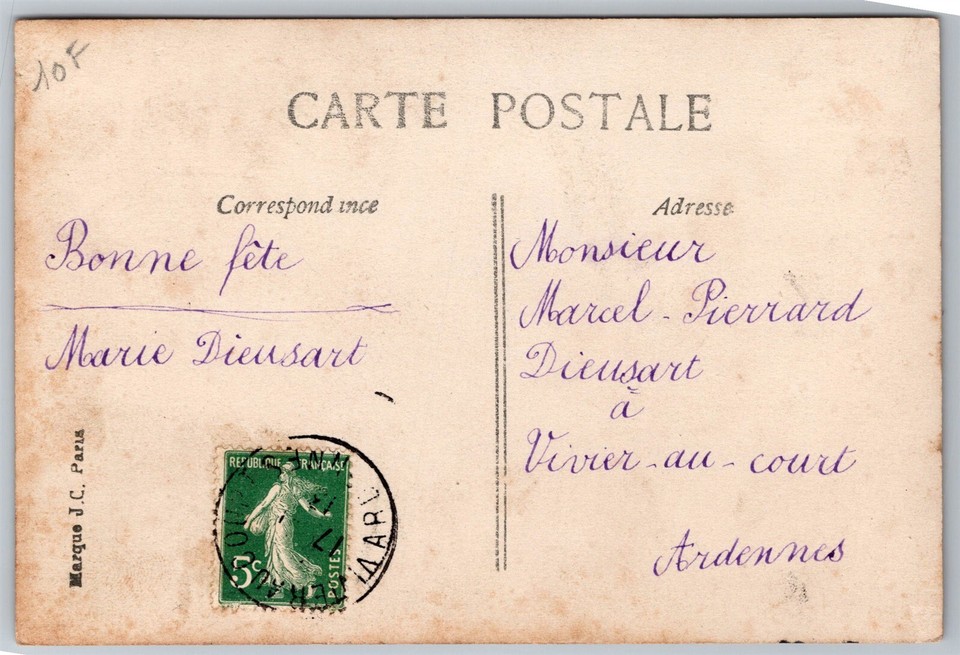 10F
CARTE POSTALE
Correspondance
Bonne fête
Marie Dieusart
Adresse
Monsieur
Marcel - Pierrard
Dieusart
à
Vivier-au-court
Ardennes
Marque J.C. Paris
REPUBLIQUE FRANÇAISE
5c
POSTES
17